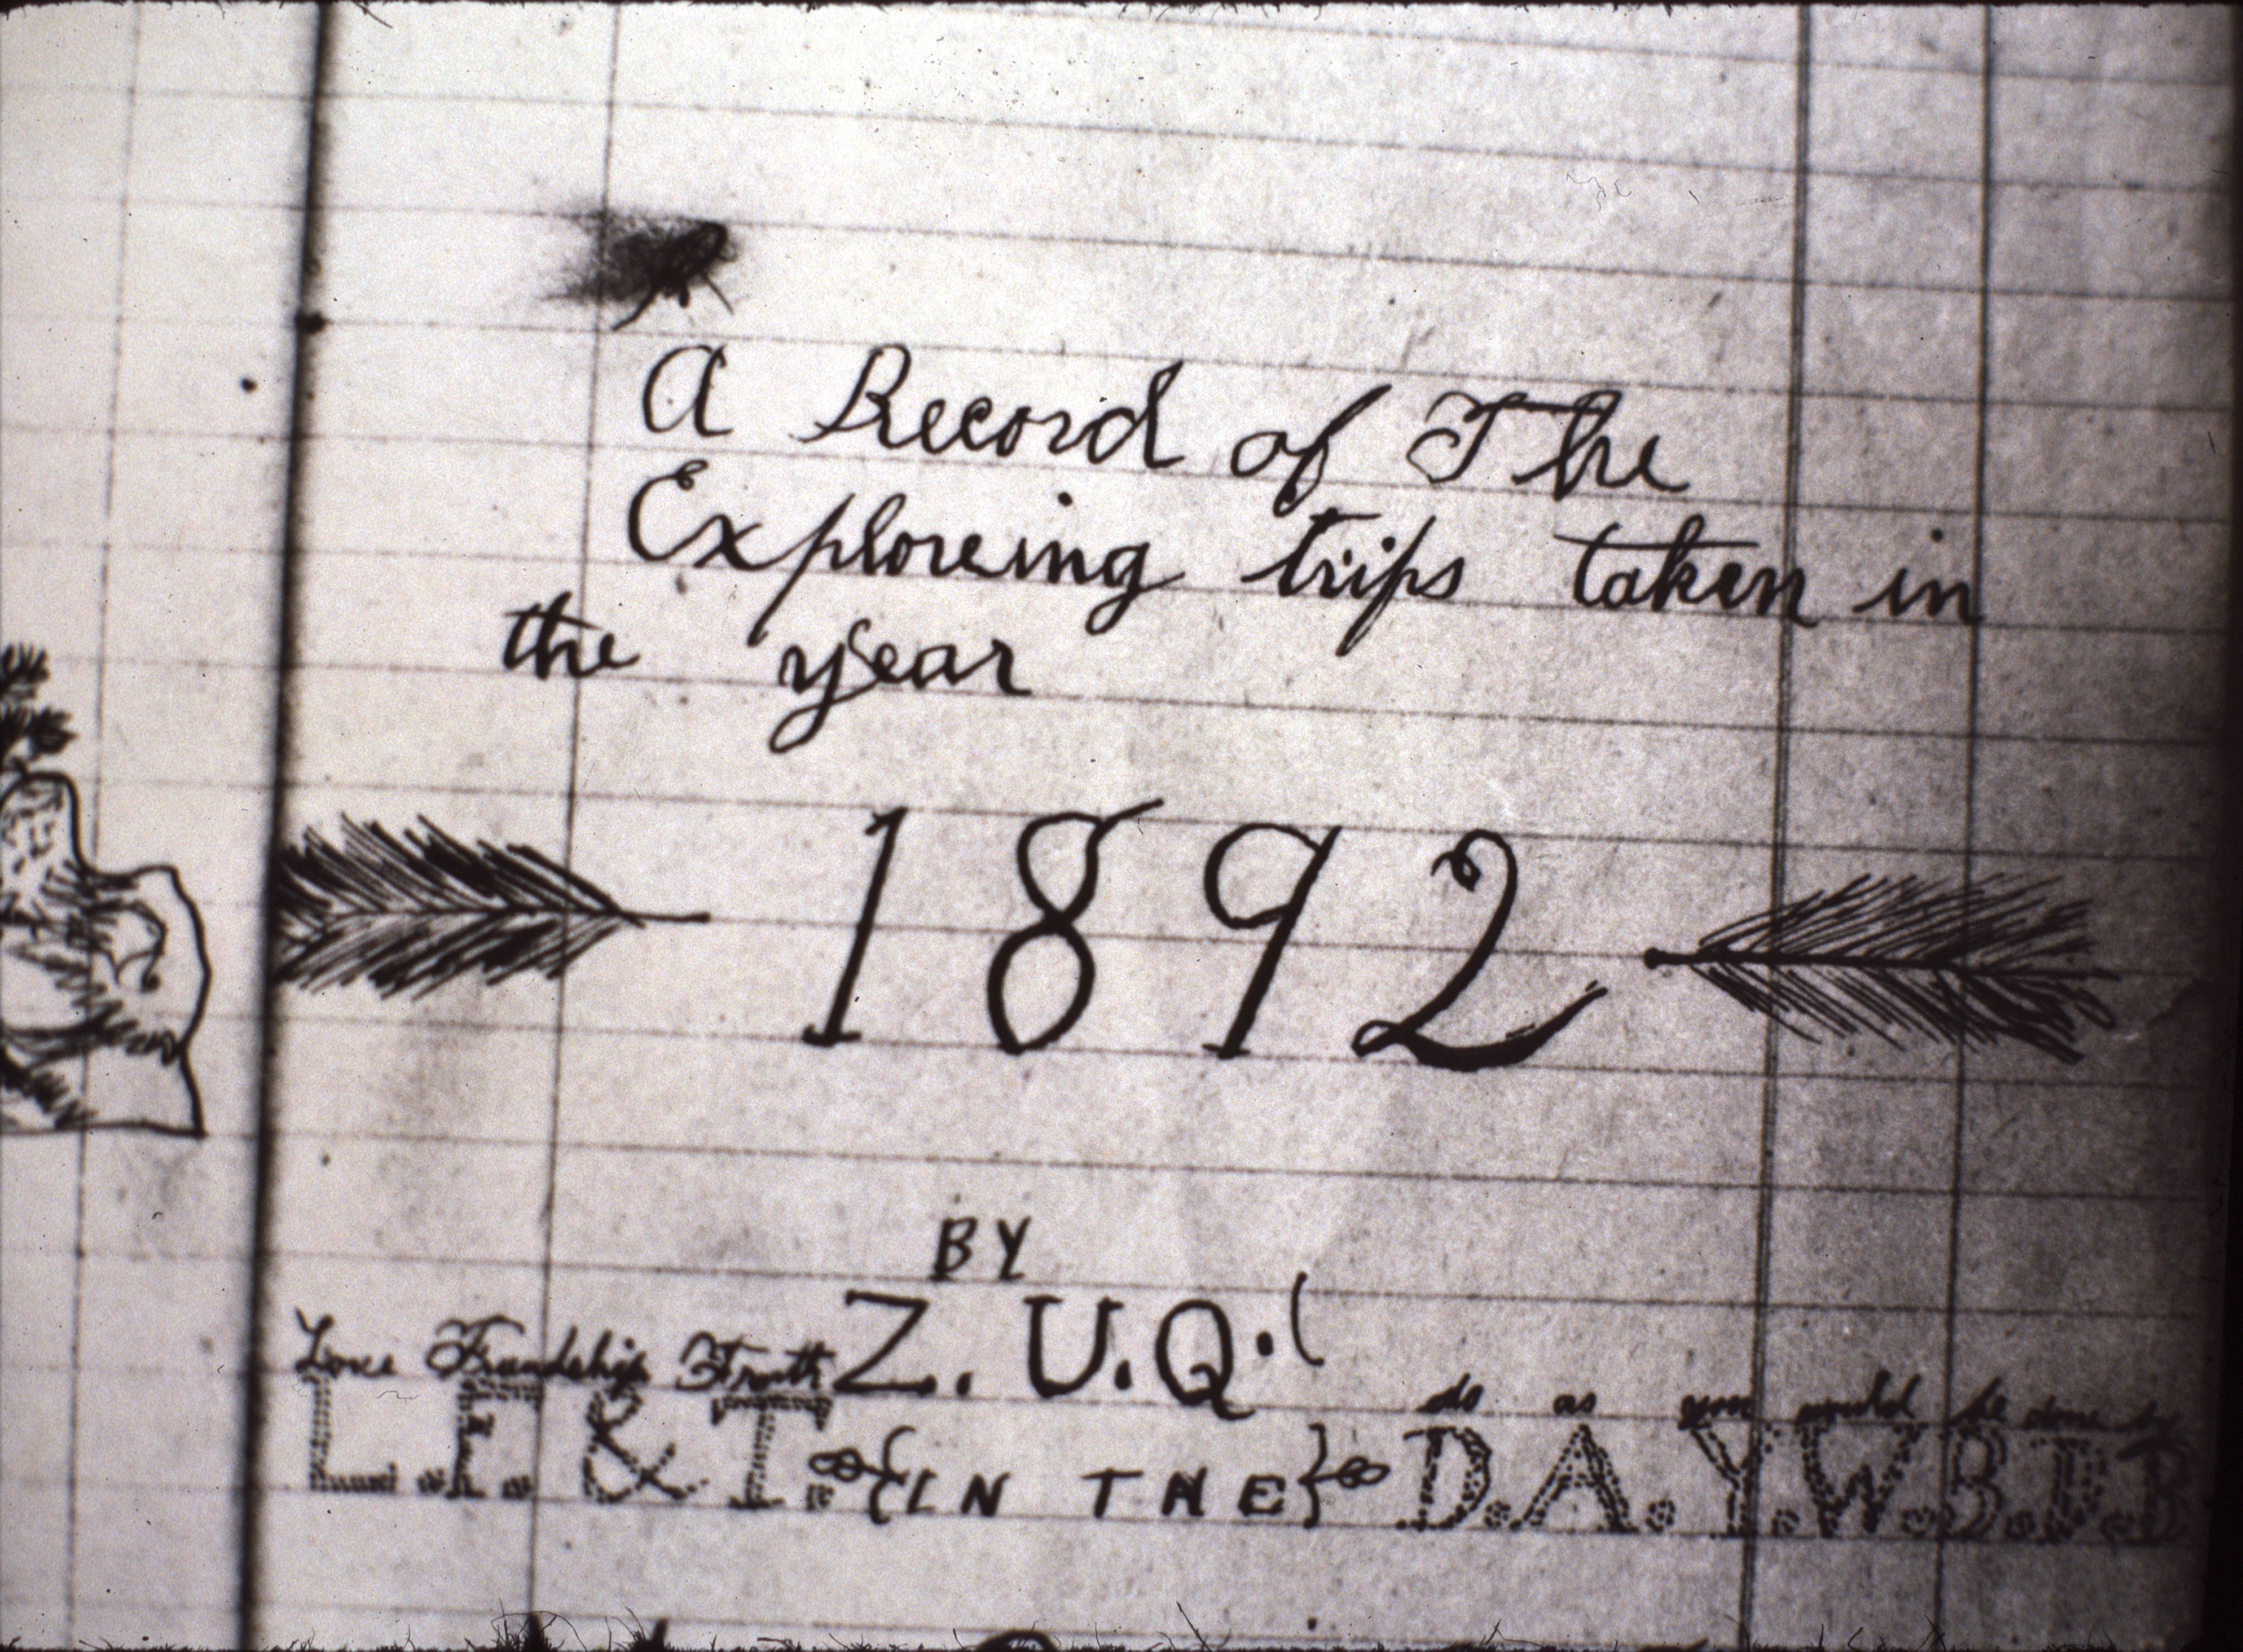 A Record of The
Exploreing trips taken in
the year
1892
BY
Z. U. Q.
Love Friendship Truth
do as you would be done by
L. F. & T. {IN THE} D.A.Y.W.B.D.B